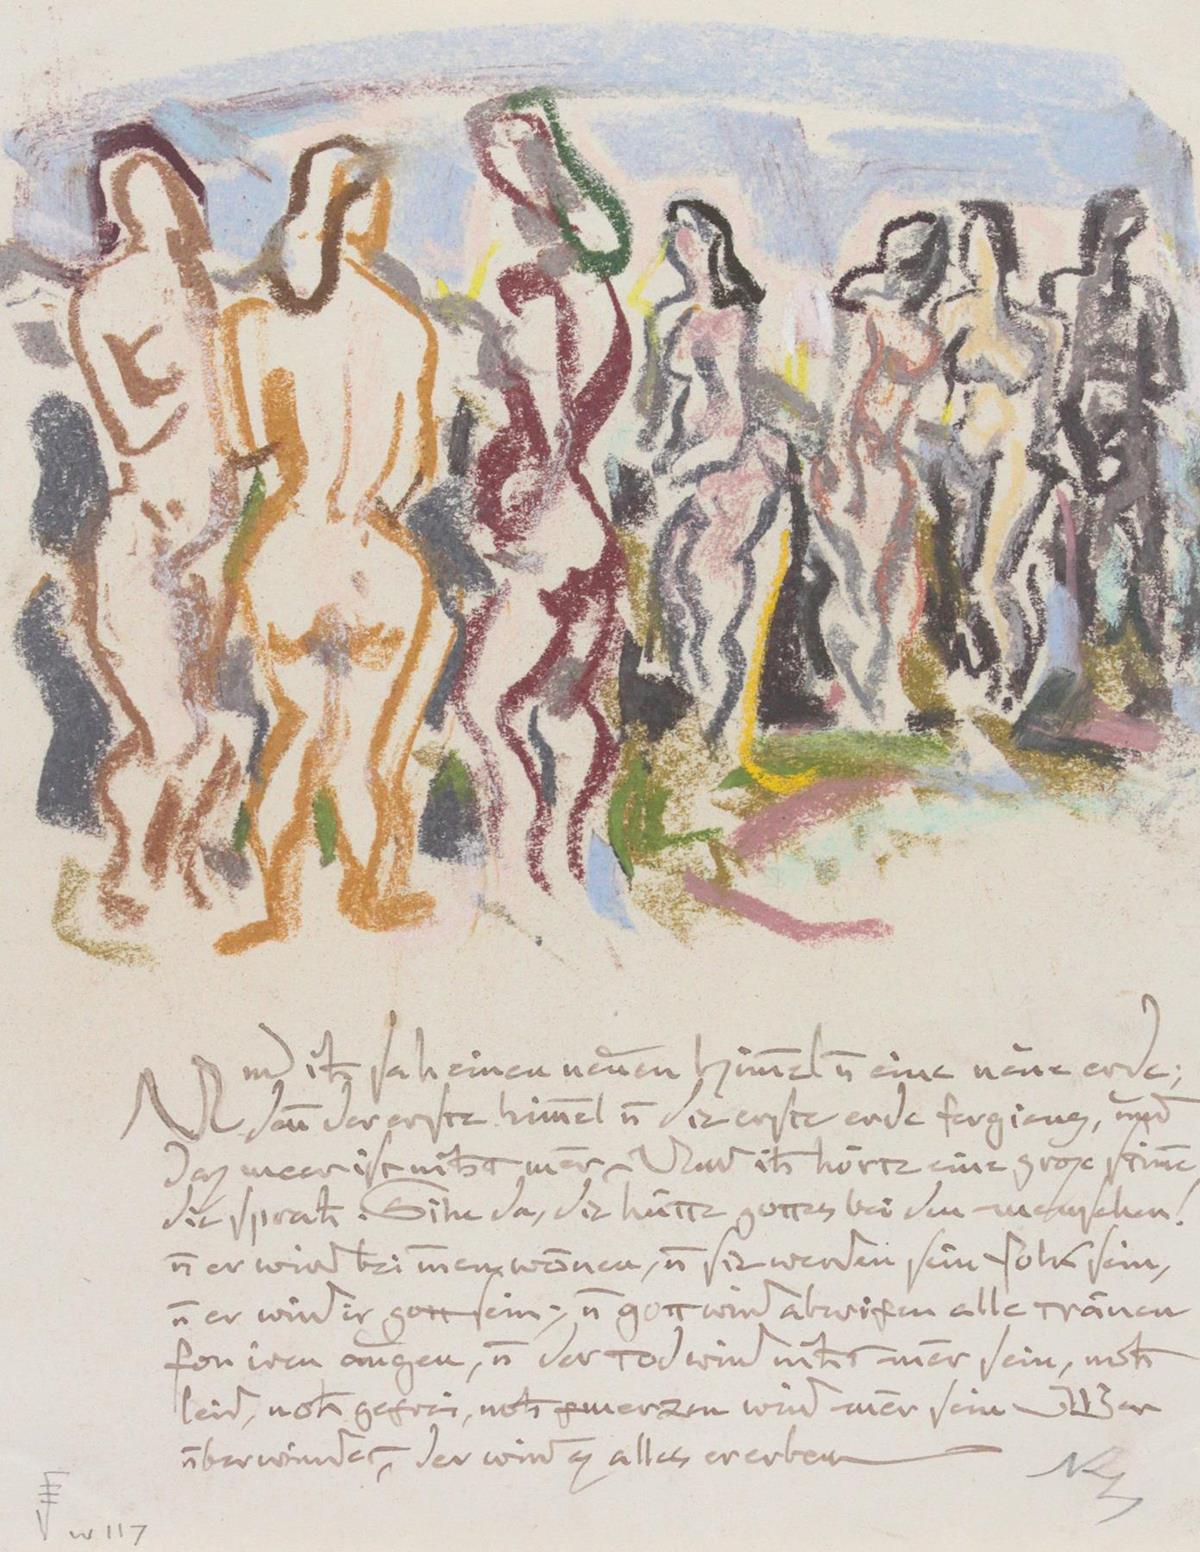 Und ich sah einen neuen himel ū eine neue erde;
dan̄ der erste himel ū die erste erde fergieng, und
daz meer ist nicht mer. Und ich hörte eine groze stime
die sprach: Sihe da, die hütte gottes bei den menschen!
ū er wird bei inen wonen, ū sie werden sein folk sein,
ū er wird ir gott sein; ū gott wird abwischen alle tränen
fon iren augen, ū der tod wird nicht mer sein, noch
leid, noch geschrei, noch schmerzen wird mer sein Wer
überwindet, der wird es alles ererben
w 117